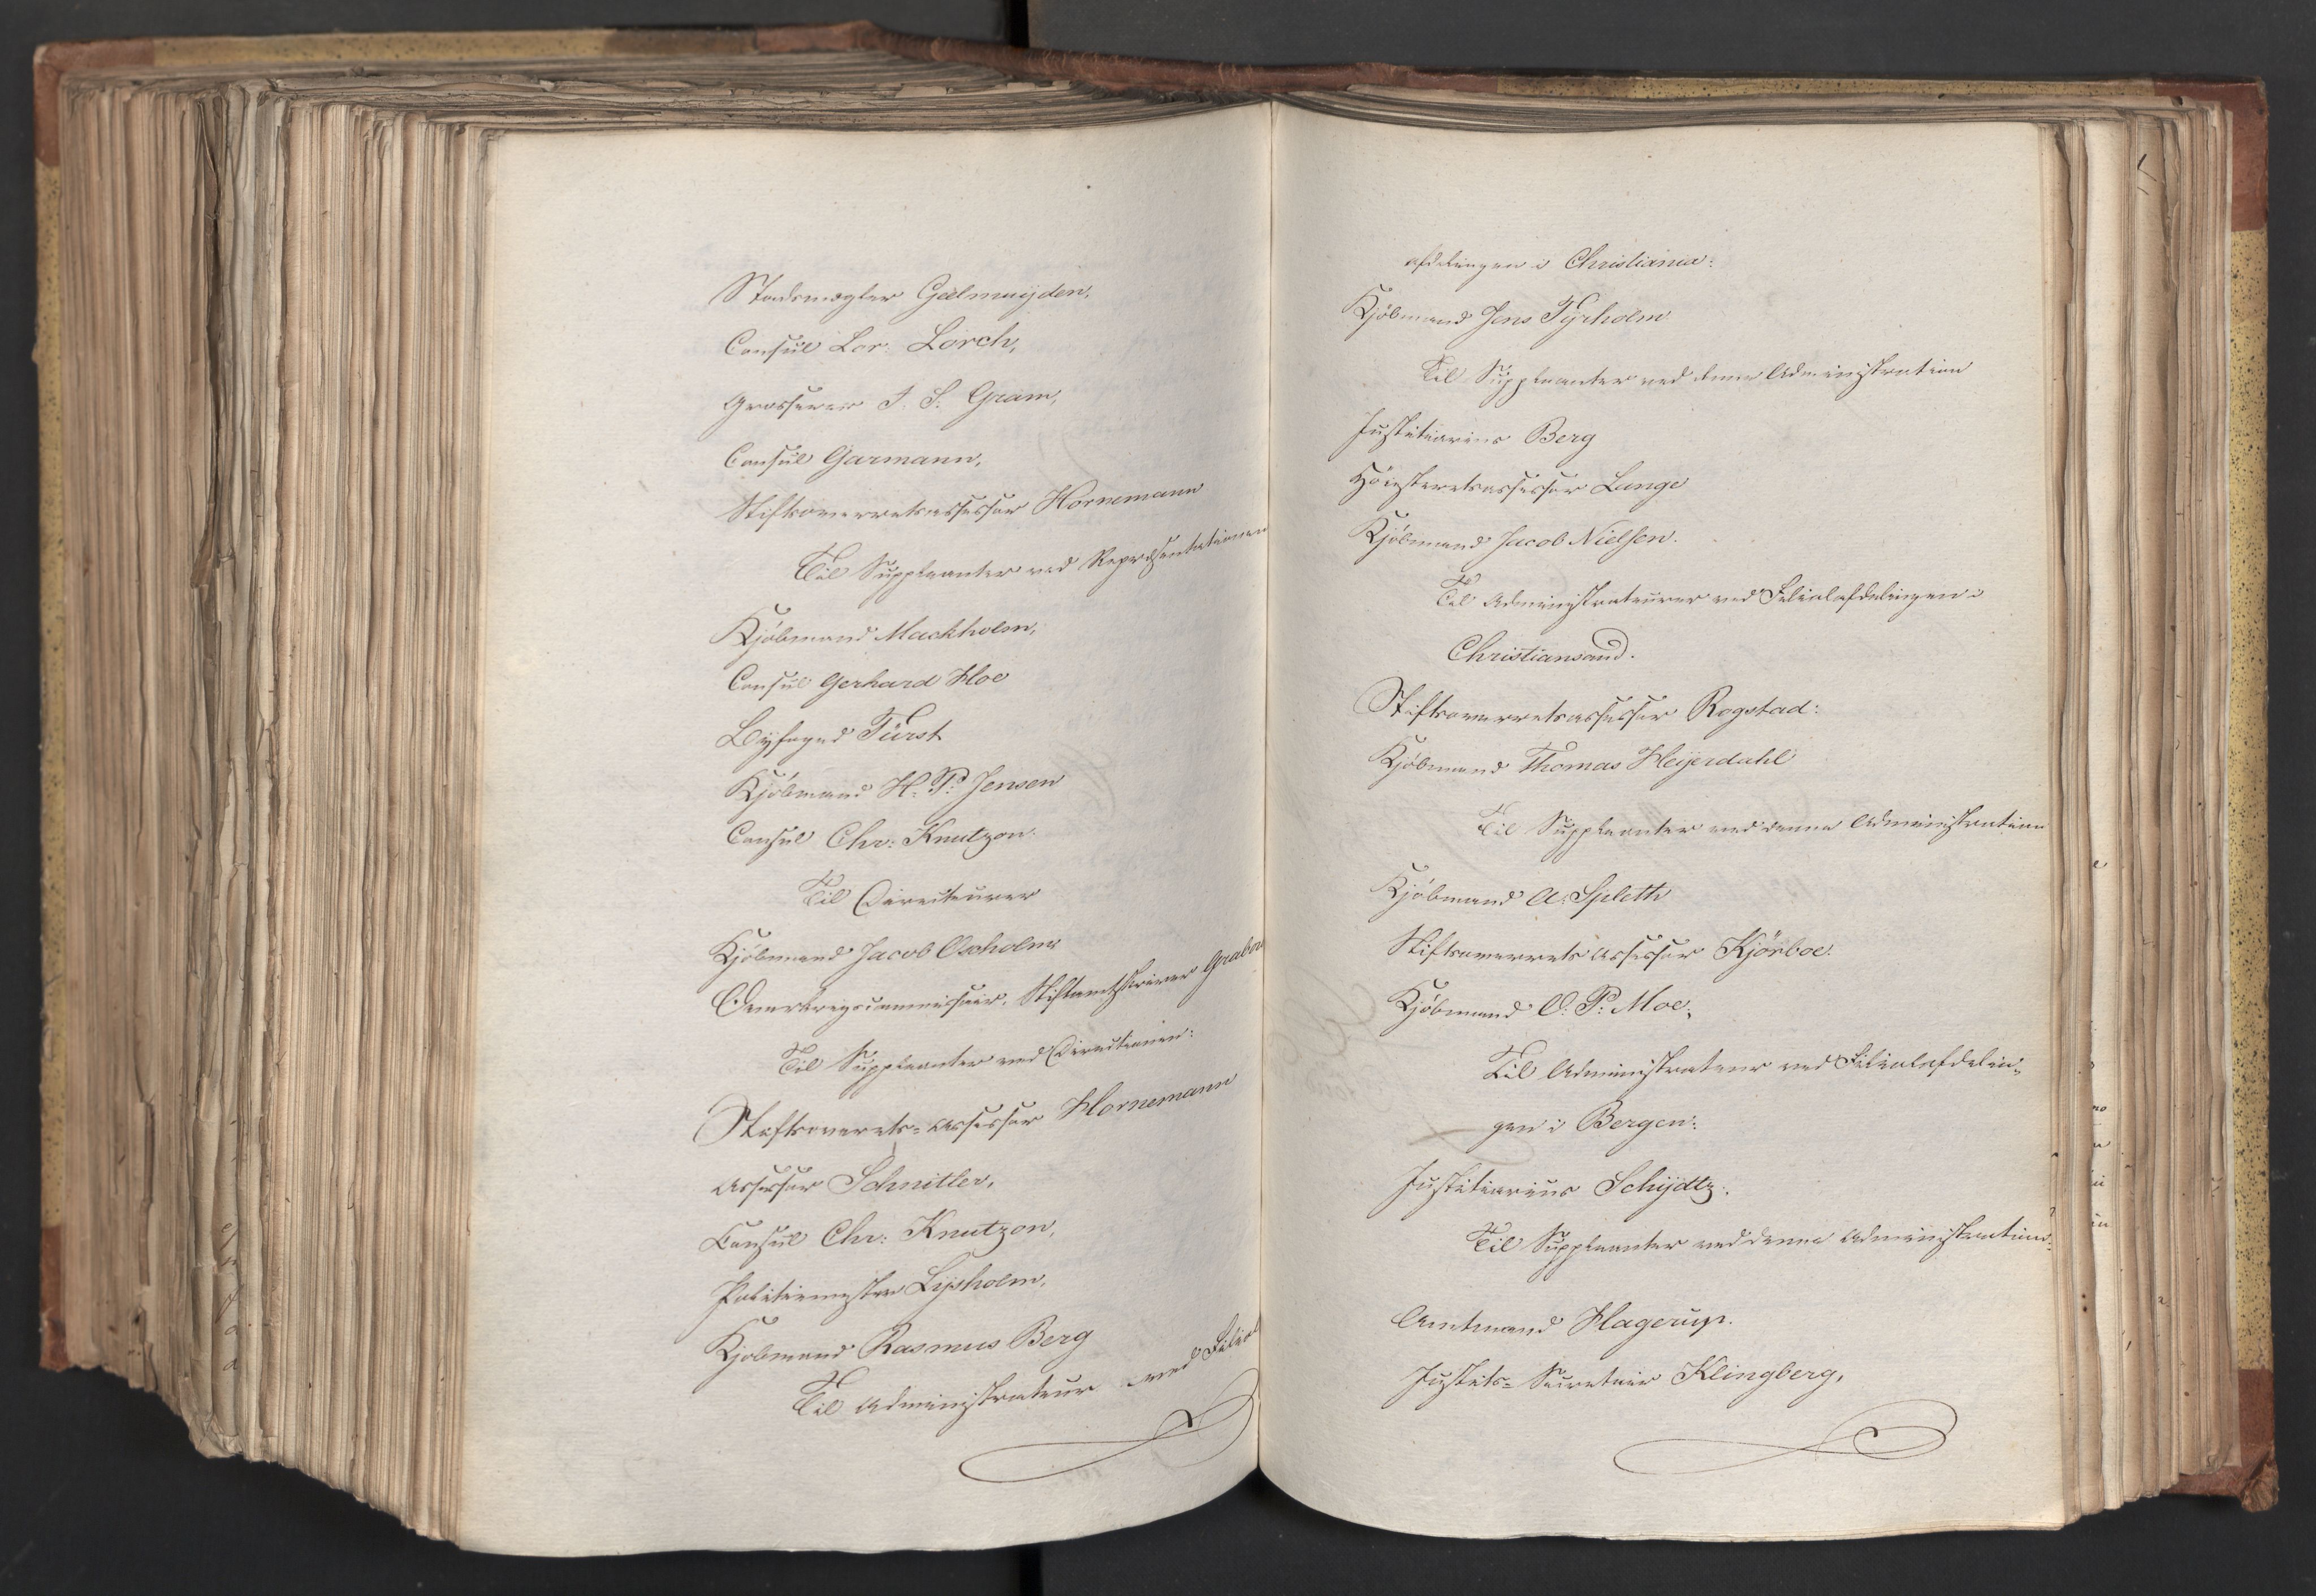 Stadsmægler Geelmuijden,
Consul Lor: Lorch,
Grosserer J. S: Gram,
Consul Garmann,
Stiftsoverretsassessor Hornemann
Til Suppleanter ved Repræsentationen
Kjöbmand Mackholm,
Consul Gerhard Hoe
Byfoged Fürst
Kjöbmand H. P: Jensen
Consul Chr: Knutzon.
Til Directeurer
Kjöbmand Jacob Oxholm
Overkrigscommissair, Stiftamtskriver
Til Suppleanter ved Directionen:
Stiftsoverrets-Assessor Hornemann
Assessor Schnitler,
Consul Chr: Knutzon,
Politiemester Lysholm,
Kjöbmand Rasmus Berg
Til Administrateur ved Filial
afdelingen i Christiania:
Kjöbmand Jens Tyrholm
Til Suppleanter ved denne Administration
Justitiarius Berg
Höiesteretsassessor Lange
Kjöbmand Jacob Nielsen.
Til Administrateurer ved Filialafdelingen i
Christiansand.
Stiftsoverretsassessor Rogstad:
Kjöbmand Thomas Heyerdahl
Til Suppleanter ved denne Administration
Kjöbmand A. Spleth
Stiftsoverrets Assessor Kjörboe.
Kjöbmand O. P: Moe,
Til Administrateur ved Filialafdelin-
gen i Bergen:
Justitiarius Schydtz.
Til Suppleanter ved denne Administration:
Amtmand Hagerup.
Justits-Secretair Klingberg,